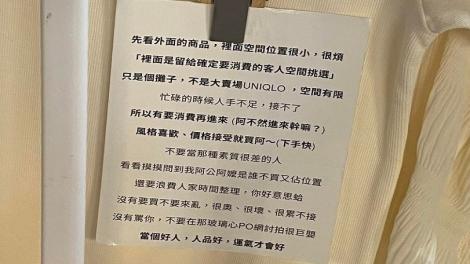 先看外面的商品，裡面空間位置很小，很煩
「裡面是留給確定要消費的客人空間挑選」
只是個攤子，不是大賣場UNIQLO，空間有限
忙碌的時候人手不足，接不了
所以有要消費再進來 (阿不然進來幹嘛？)
風格喜歡、價格接受就買阿～(下手快)
不要當那種素質很差的人
看看摸摸問到我阿公阿嬤是誰不買又佔位置
還要浪費人家時間整理，你好意思蛤
沒有要買不要來亂，很奧、很壞、很累不接
沒有罵你，不要在那玻璃心PO網討拍很巨嬰
當個好人，人品好，運氣才會好